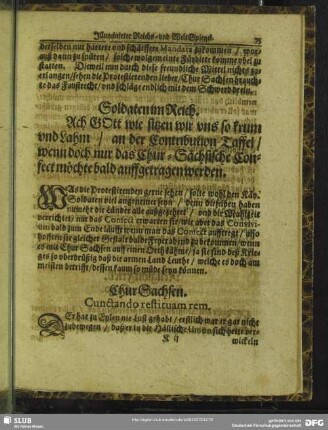 Illuminirter Reichs- und Welt-Spiegel. 75
derselben nur härtere und schärffere Mandata zukommen / wor-
auß dann zu spüren / solche wolgemeinte Fürbitte komme übel zu
statten. Dieweil nun durch diese freundliche Mittel nichts zu
erlangen / sehen die Protestierenden lieber / Chur Sachsen brauch-
te das Faustrecht / und schlüge endlich mit dem Schwerdt drein.
Soldaten im Reich.
Ach GOtt wie sitzen wir vns so krum
vnd Lahm / an der Contribution Taffel /
wenn doch nur das Chur-Sächsische Con-
fect möchte bald auffgetragen werden.
WAs die Protestirenden gerne sehen / solte wohl den Käy.
Soldaten viel angenemer seyn / denn dieselben haben
nunmehr die Länder alle außgezehret / und die Mahlzeit
verrichtet / nur das Confect erwarten sie / wie aber das Convivi-
um bald zum Ende läufft wenn man das Confect auffträgt / also
hoffen sie gleicher Gestalt balde Feyerabend zu bekommen / wenn
es mit Chur Sachsen auff einen Orth käme / ja sie sind deß Krie-
ges so überdrüßig daß die armen Land Leuthe / welche es doch am
meisten betrifft / dessen kaum so müde seyn können.
Chur Sachsen.
Cunctando restituam rem.
DEr hat zu Eylen nie Lust gehabt / erstlich war er gar nicht
zubewegen / daß er in die Hällische Union sich hette ver-
K ij wickeln
SLUB
Wir führen Wissen.
http://digital.slub-dresden.de/
gefördert von der
Deutschen Forschungsgemeinschaft
DFG